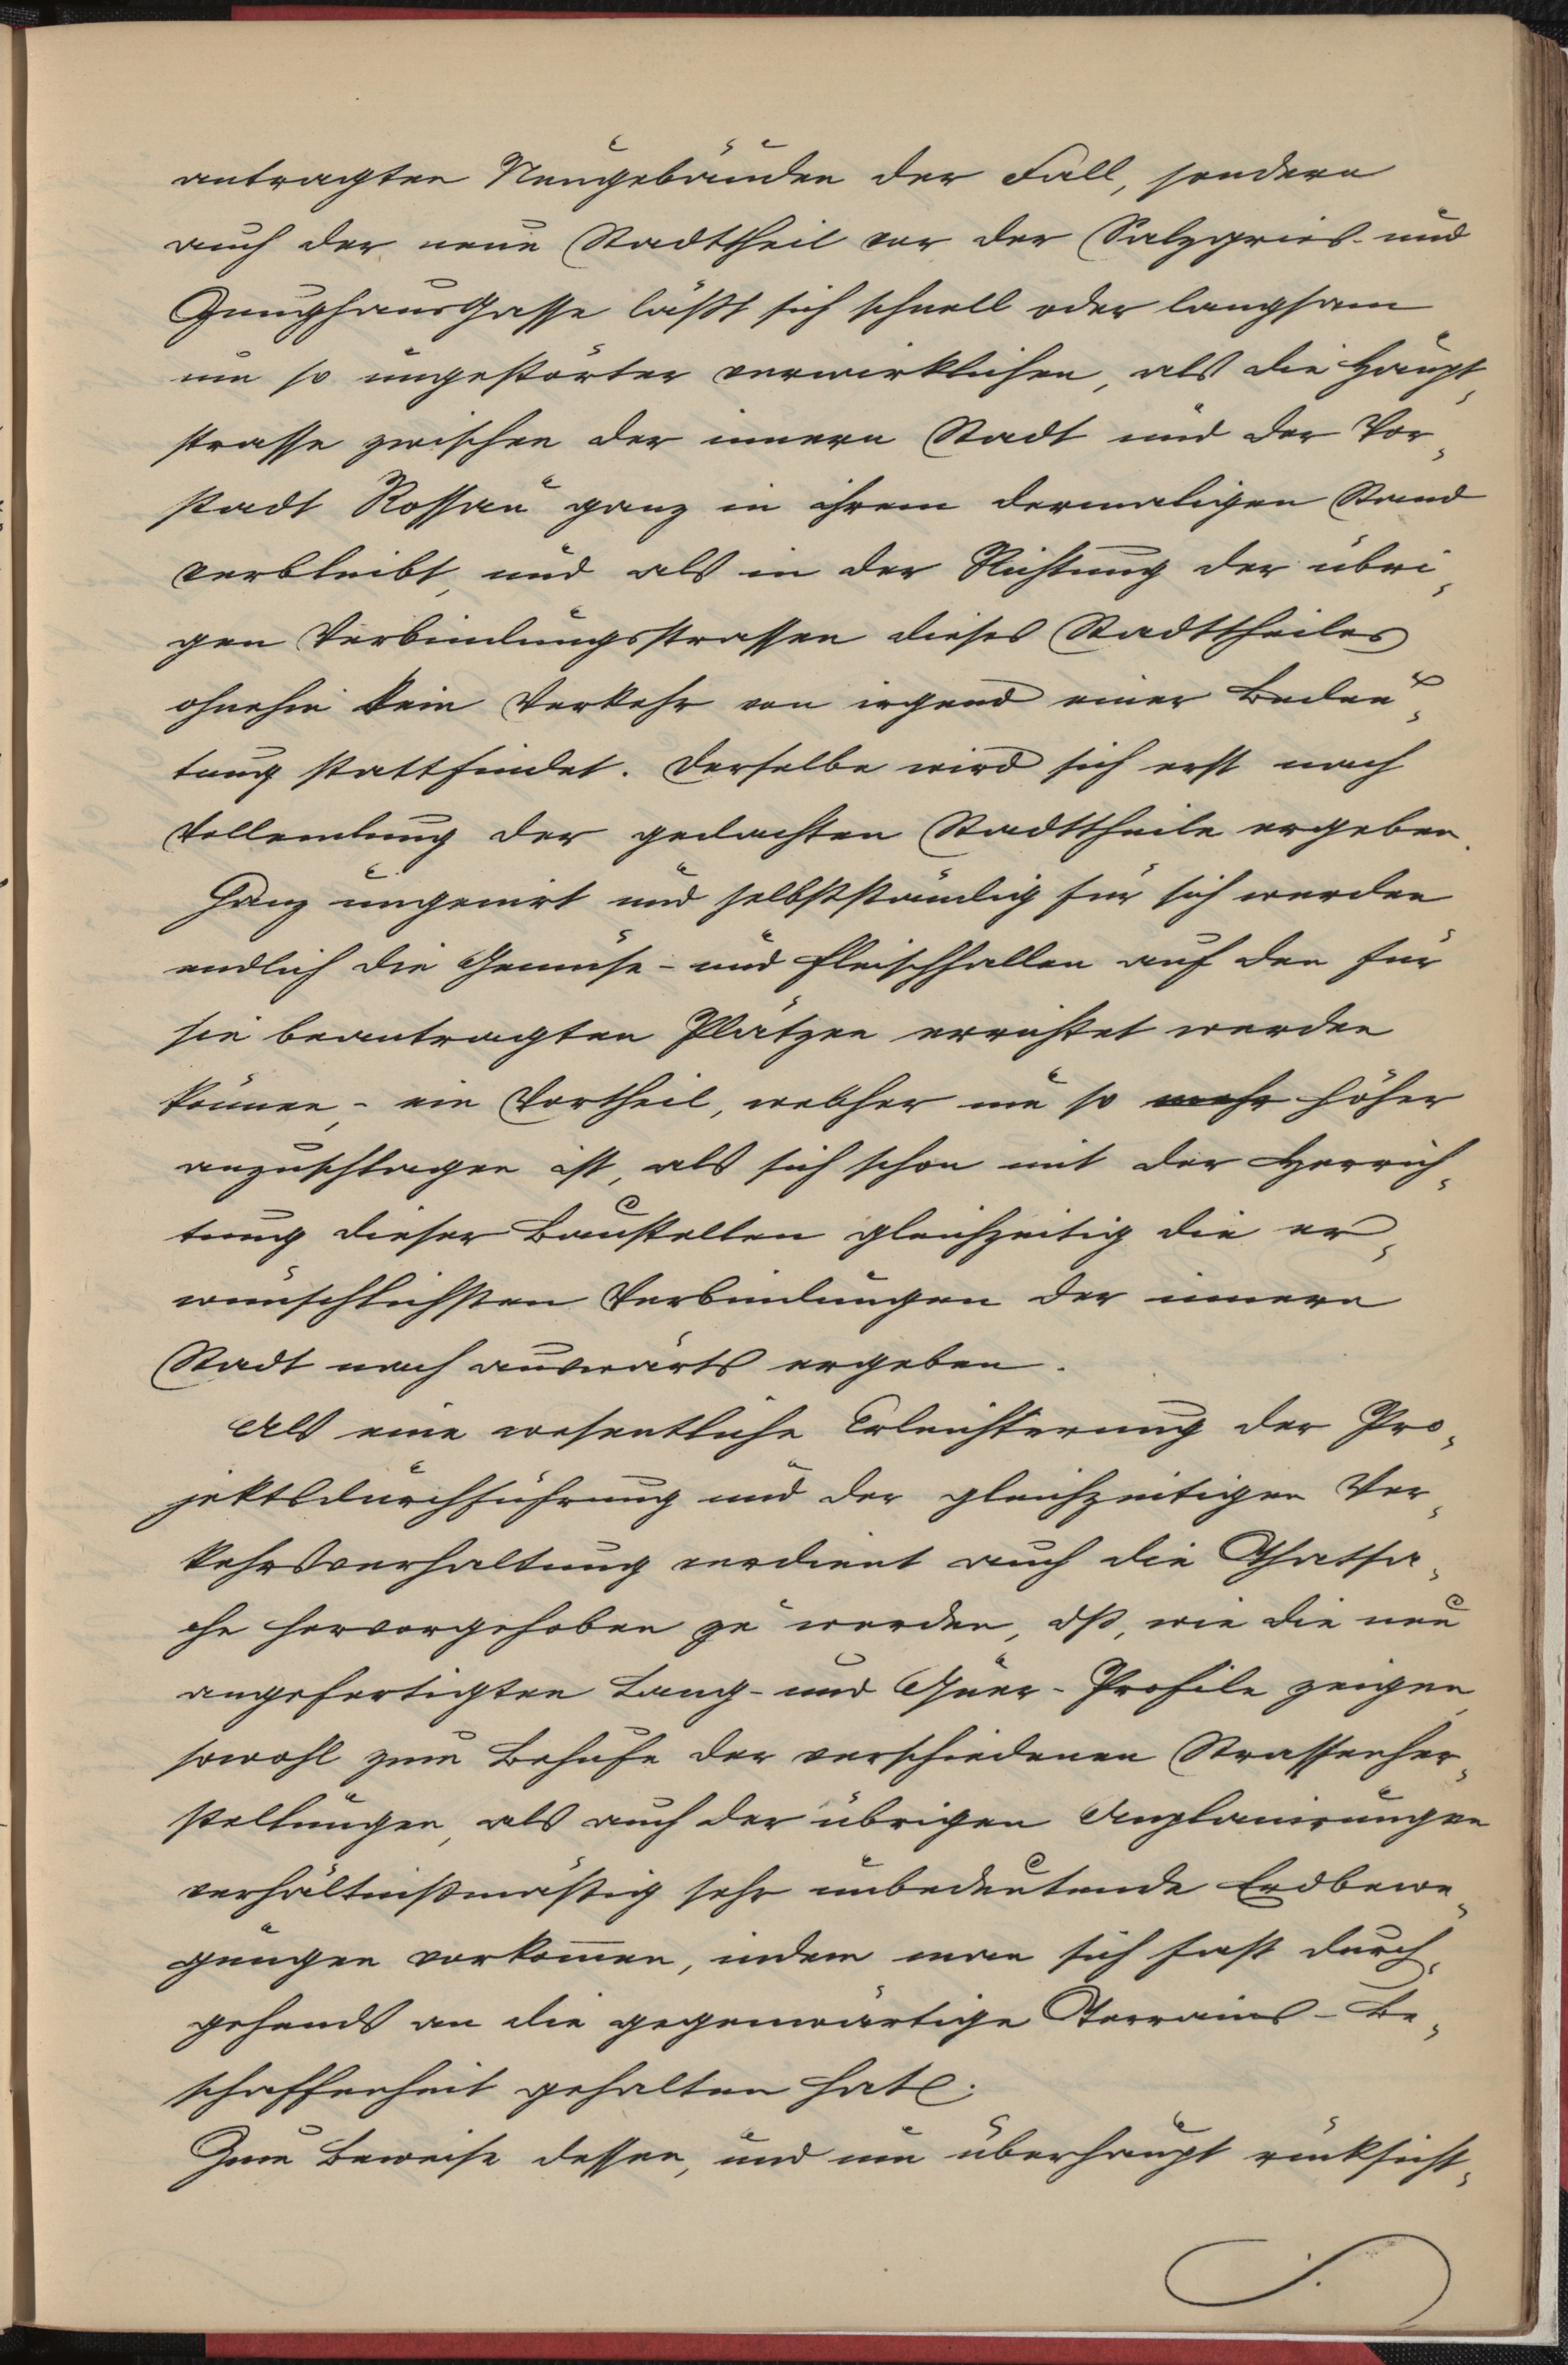 antragten Neugebäuden der Fall, sondern
auch der neue Stadttheil vor der Salzgries- und
Zeughausgasse läßt sich schnell oder langsam
um so ungestörter verwirklichen, als die Haupt„
strasse zwischen der innern Stadt und der Vor„
stadt Rossau ganz in ihrem dermaligen Stand
verbleibt, und als in der Richtung der übri„
gen Verbindungsstrassen dieses Stadttheiles
ohnehin kein Verkehr von irgend einer Bedeu„
tung stattfindet. Derselbe wird sich erst nach
Vollendung der gedachten Stadttheile ergeben.
Ganz ungenirt und selbstständig für sich werden
endlich die Gemüse- und Fleischhallen auf den für
sie beantragten Plätzen errichtet werden
können, - ein Vortheil, welcher um so mehr höher
anzuschlagen ist, als sich schon mit der Herrich„
tung dieser Baustellen gleichzeitig die er„
wünschlichsten Verbindungen der innern
Stadt nach auswärts ergeben.
Als eine wesentliche Erleichterung der Pro„
jektsdurchführung und der gleichzeitigen Ver„
kehrserhaltung verdient auch die Thatsa„
che hervorgehoben zu werden, dß, wie die neu
angefertigten Lang- und Quer-Profile zeigen,
sowohl zum Behufe der verschiedenen Strassenher„
stellungen, als auch der übrigen Anplanirungen
verhältnißmäßig sehr unbedeutende Erdbewe„
gungen vorkom̅en, indem man sich fast durch„
gehends an die gegenwärtige Terrains-Be„
schaffenheit gehalten hat.
Zum Beweise dessen, und um überhaupt rücksicht„
./.